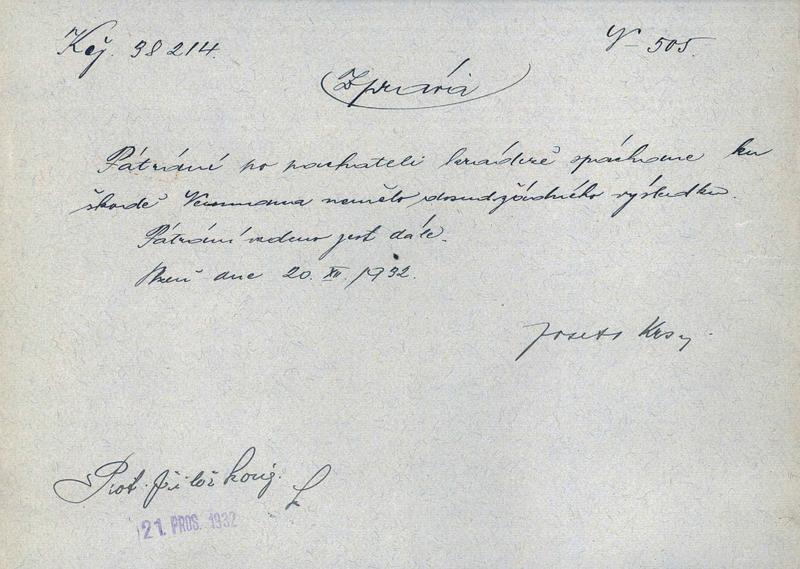 Kčj. 38214. V- 505.
Zpráva
Pátrání po pachateli krádeže spáchané ku
škodě Neumana nemělo dosud žádného výsledku.
Pátrání vedeno jest dále.
dne 20. XII. 1932.
Josef
21. PROS. 1932